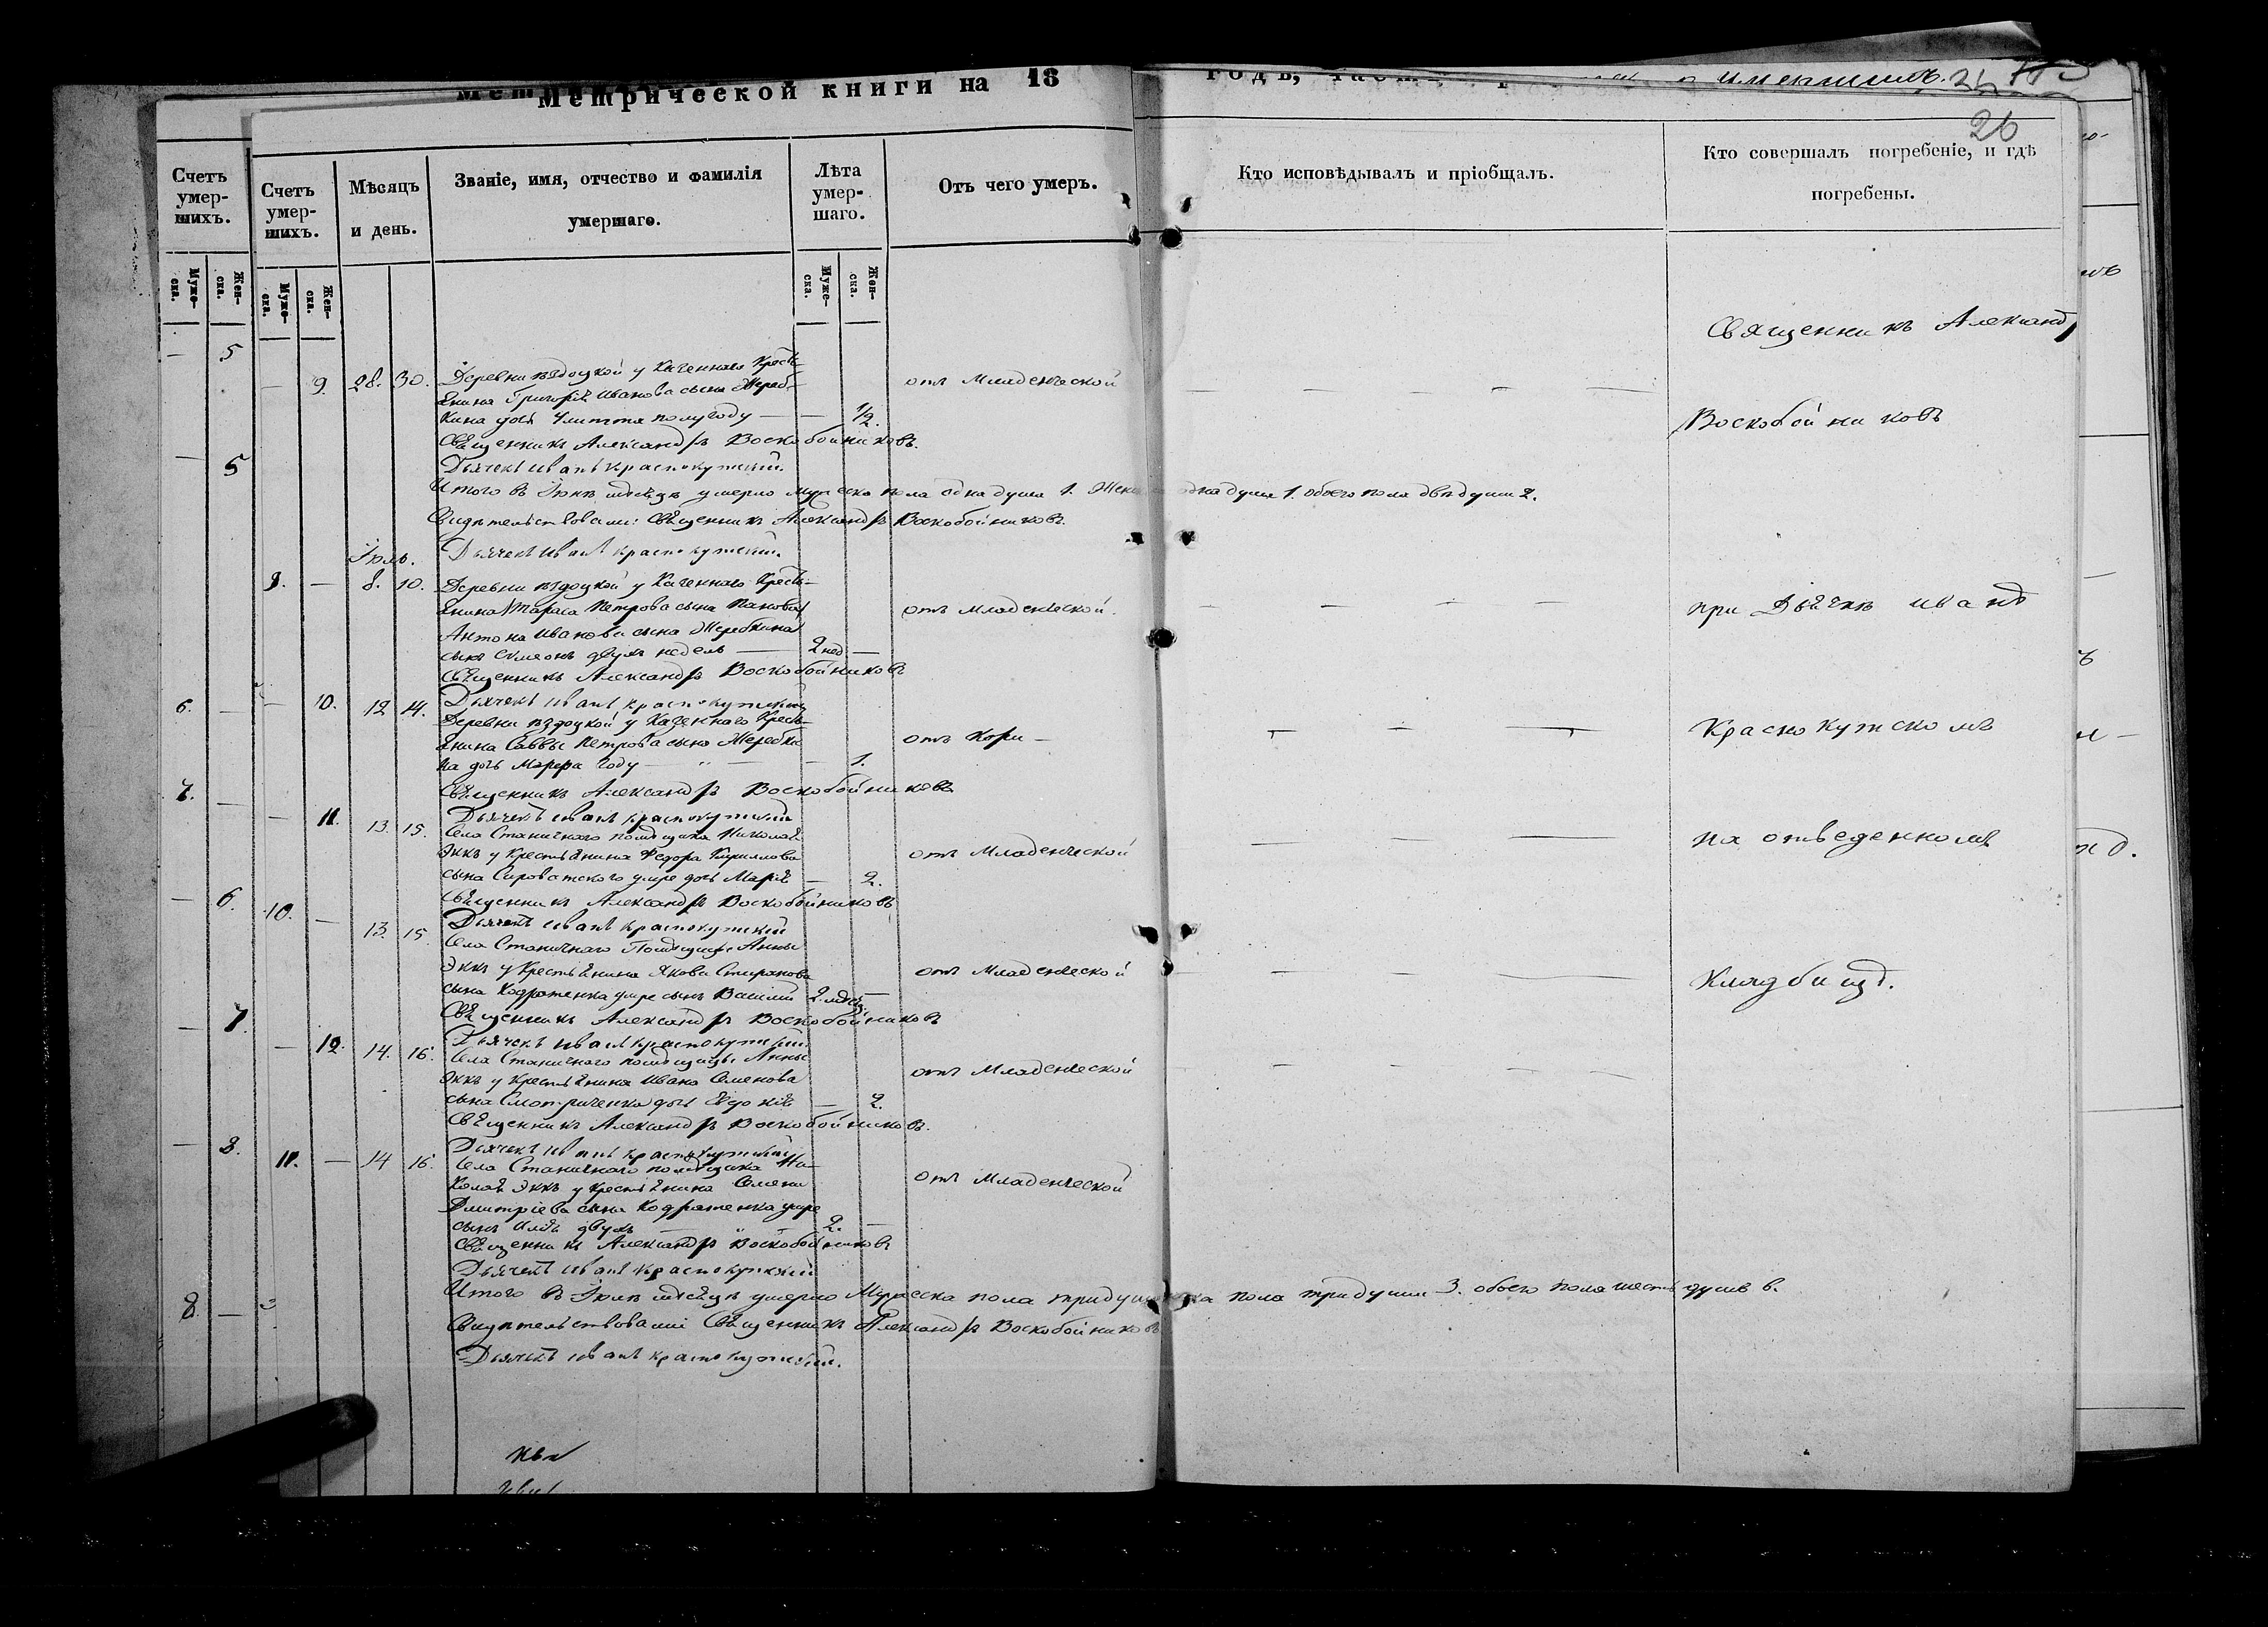 Метрической книги на 18
годъ,
26
Счетъ умерших.
Муже- ска.
Жен- ска.
Счетъ умер- шихъ.
Муже- ска.
Жен- ска.
Мѣсяцъ и день.
Званіе, имя, отчество и фамилія умершаго.
Лѣта умер- шаго.
Муже- ска.
Жен- ска.
Отъ чего умеръ.
Кто исповѣдывалъ и пріобщалъ.
Кто совершалъ погребеніе, и гдѣ погребены.
— 5
— 5
6. —
7. —
— 6.
— 7.
— 8.
8. —
— 9. 28. 30. Деревни у Казеннаго Кресть-
янина Григорія Иванова сына Жереб-
кина дочь полугоду — — 1/2.
отъ Младенческой
Священникъ Александръ Воскобойниковъ.
Дьячекъ Иванъ Краснокутскій.
Итого въ Іюнѣ мѣсяцѣ умерло мужеска пола одна душа 1. Жен однa душа 1. обоего пола двѣ души 2.
Свидѣтельствовали: Священникъ Александръ Воскобойниковъ.
Дьячекъ Иванъ Краснокутскій.
Іюль.
9. — 8. 10. Деревни у Казеннаго Кресть-
янина Тараса Петрова сына
Антона Иванова сына Жеребкина
сынъ Симеонъ двухъ недель — 2 нед —
отъ Младенческой.
Священникъ Александръ Воскобойниковъ
Дьячекъ Иванъ Краснокутскій
— 10. 12 14. Деревни у Казеннаго Кресть-
янина Саввы Петрова сына Жеребки
на дочь Марфа году — — 1.
отъ Кори —
Священникъ Александръ Воскобойниковъ
Дьячекъ Иванъ Краснокутскій
— 11. 13. 15. Села Станичного помѣщика Николая
Эккъ у Крестьянина Федора Кириллова
сына Сироватского умре дочь Марія — 2.
отъ Младенческой
Священникъ Александръ Воскобойниковъ
Дьячекъ Иванъ Краснокутскій
10. — 13. 15. Села Станичного Помѣщицы Анны
Эккъ у Крестьянина Якова
сына Кодратенка умре сынъ Василий 2. мѣсяц. —
отъ Младенческой
Священникъ Александръ Воскобойниковъ
Дьячекъ Иванъ Краснокутскій.
— 12. 14. 16. Села Станичного помѣщицы Анны
Эккъ у Крестьянина Ивана Семенова
сына дочь Евдокія — 2.
отъ Младенческой
Священникъ Александръ Воскобойниковъ.
Дьячекъ Иванъ Краснокутскій
11. — 14 16. Села Станичного помѣщика Ни-
колая Эккъ у Крестьянина Семена
Дмитріева сына Кодратенка умре
сынъ Илія двухъ — 2. —
отъ Младенческой
Священникъ Александръ Воскобойниковъ
Дьячекъ Иванъ Краснокутскій
Итого въ Іюлѣ мѣсяцѣ умерло Мужеска пола три души ска пола три души 3. обоего пола шесть душъ 6.
Свидѣтельствовали Священникъ Александръ Воскобойниковъ
Дьячекъ Иванъ Краснокутскій.
Священникъ Александ
Воскобойниковъ
при Дьячкѣ Иванѣ
Краснокутскомъ
на отведенномъ
Кладбищѣ.